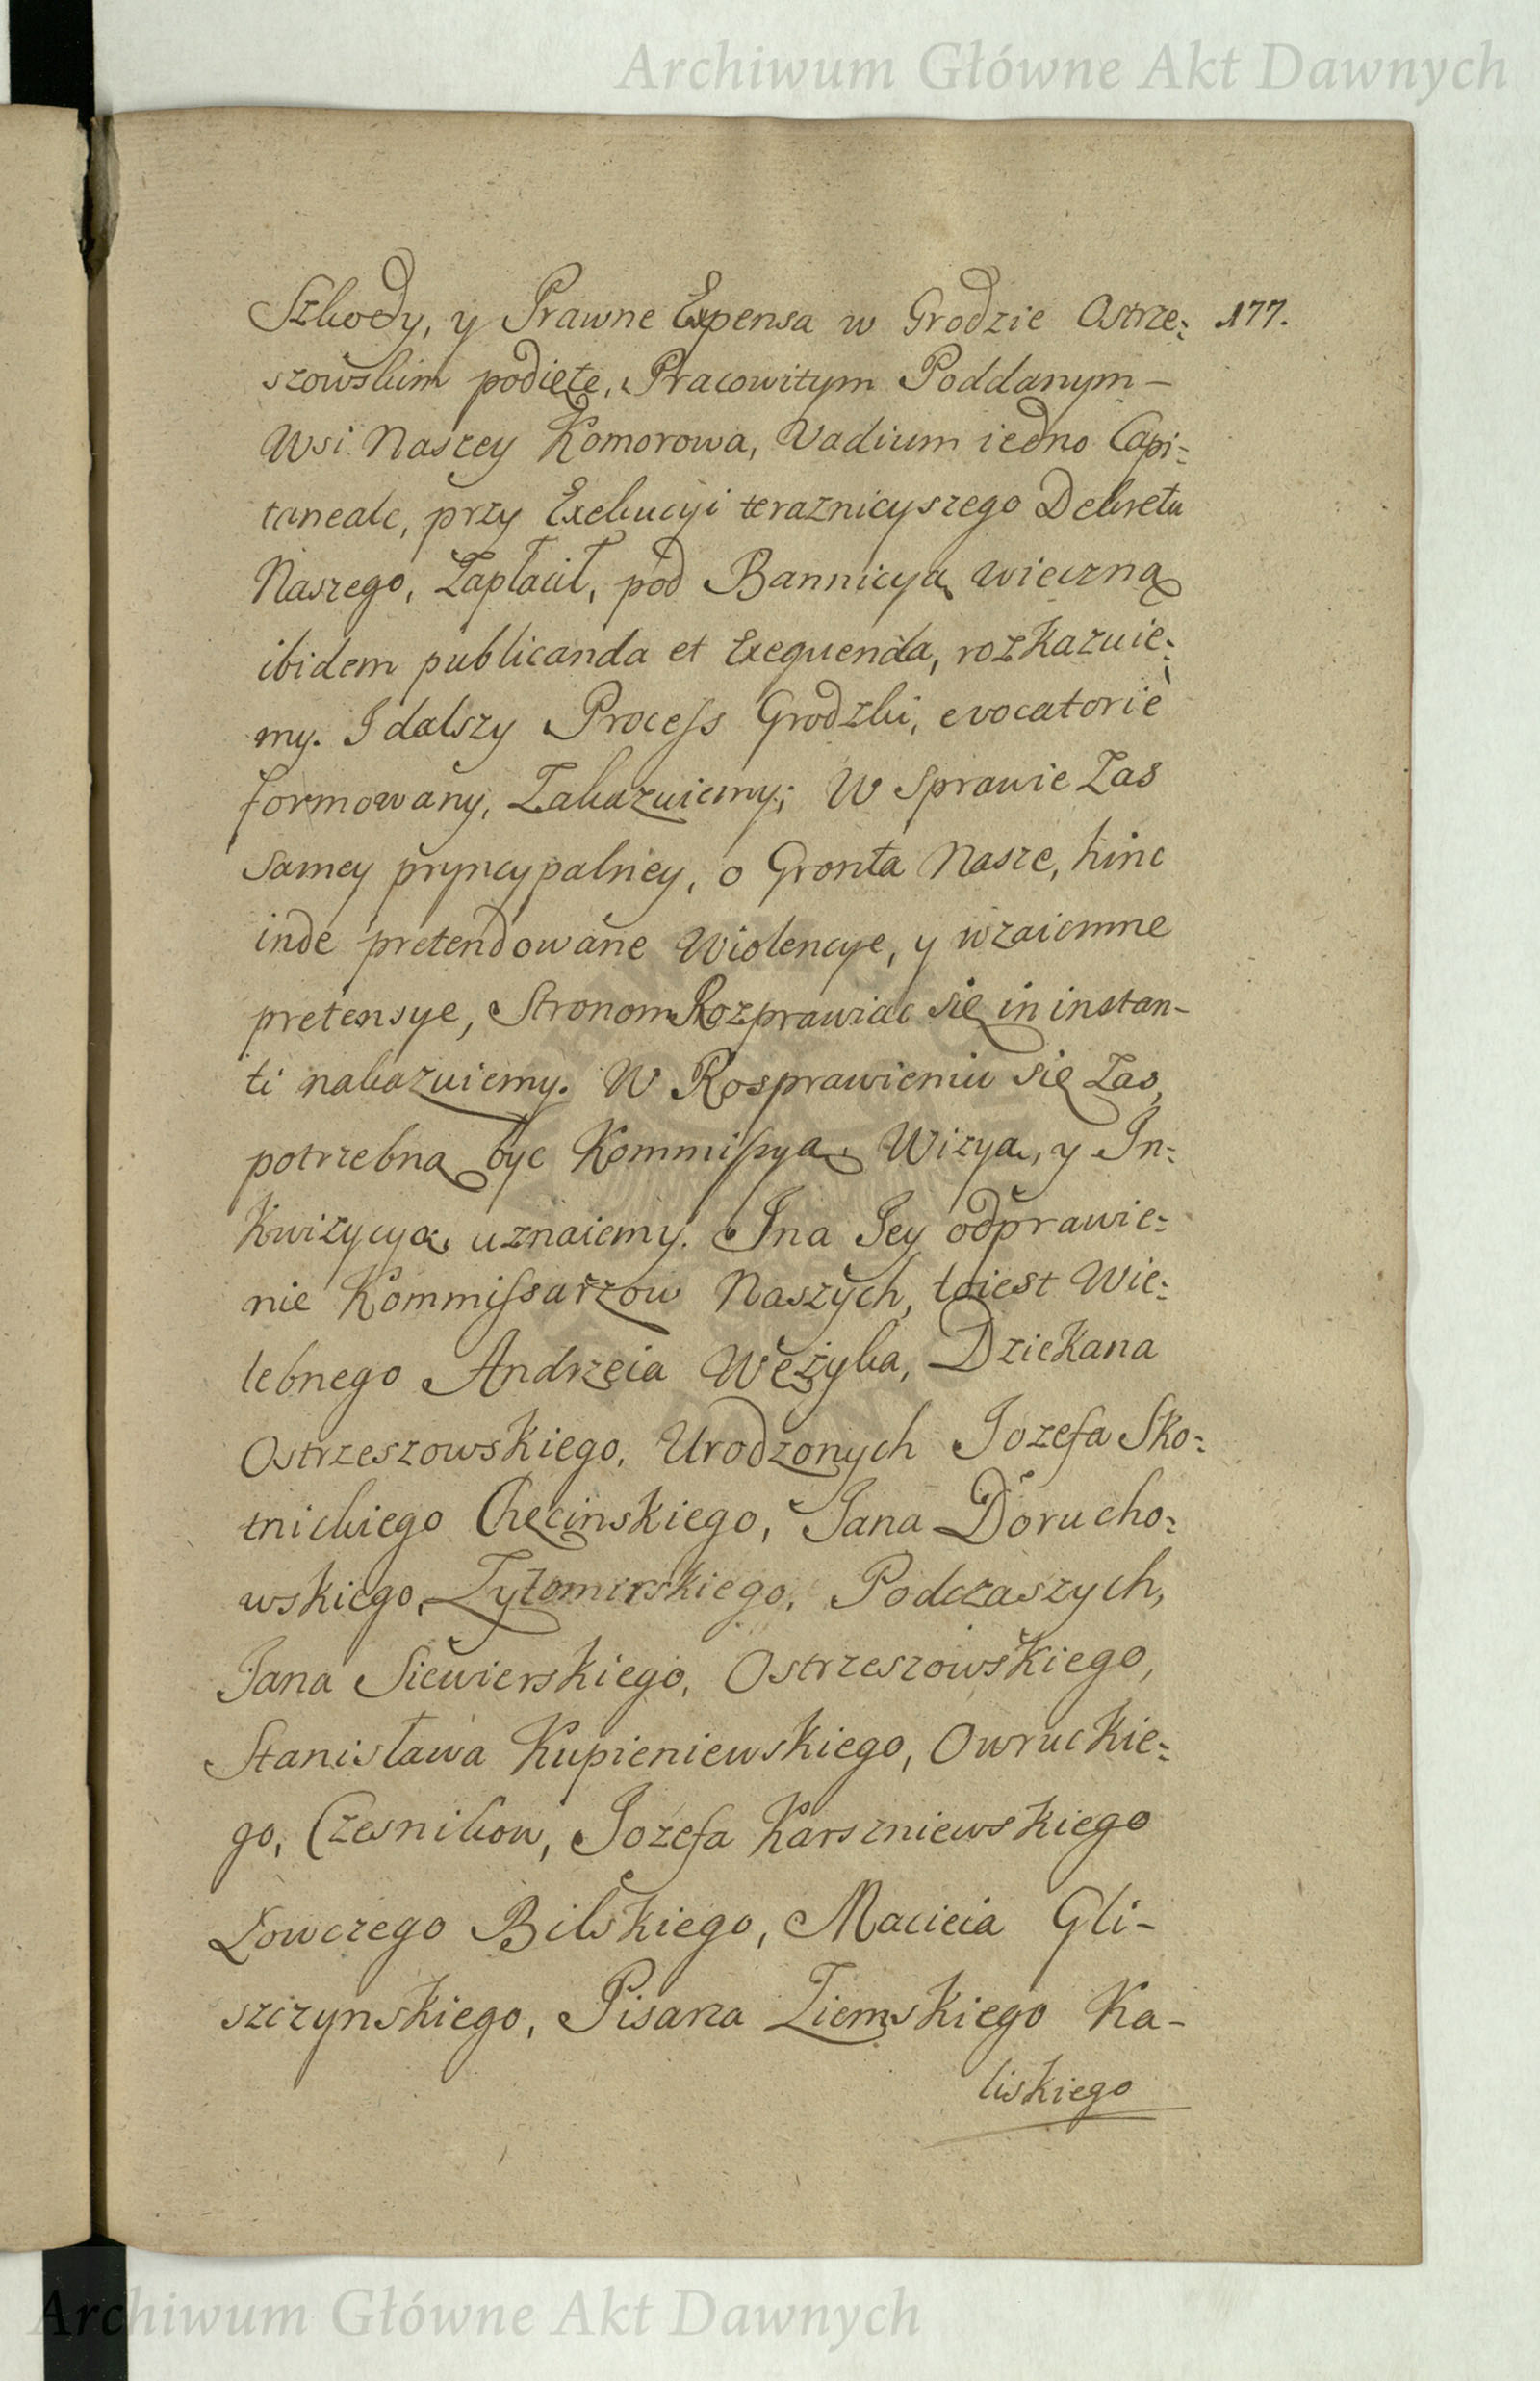 Archiwum Główne Akt Dawnych
Szkody, y Prawne Expensa w Grodzie Ostrze: 177.
szowskim podięte, Pracowitym Poddanym –
Wsi Naszey Komorowa, Vadium iedno Capi:
taneale, przy Exekucyi teraznieyszego Dekretu
Naszego, Zapłacił, pod Bannicyą wieczną
ibidem publicanda et Exequenda, rozkazuie:
my. I dalszy Process Grodzki, evocatorie
formowany, Zakazuiemy; W Sprawie Zas
Samey pryncypalney, o Gronta Nasze, hinc
inde pretendowane Wiolencye, y wzaiemne
pretensye, Stronom Rozprawiac się in instan-
ti nakazuiemy. W Rosprawieniu się Zas,
potrzebną byc Kommissyą, Wizyą, y In:
Kwizycyą, uznaiemy. I na Jey odprawie:
nie Kommissarzow Naszych, toiest Wie:
lebnego Andrzeia Wężyka, Dziekana
Ostrzeszowskiego, Urodzonych Jozefa Sko:
tnickiego Chęcinskiego, Jana Dorucho:
wskiego, Zytomirskiego, Podczaszych,
Jana Siewierskiego, Ostrzeszowskiego,
Stanisława Kupieniewskiego, Owruckie:
go, Czesnikow, Jozefa Karszniewskiego
Łowczego Bilskiego, Macieia Gli-
szczynskiego, Pisarza Ziemskiego Ka-
liskiego
Archiwum Główne Akt Dawnych